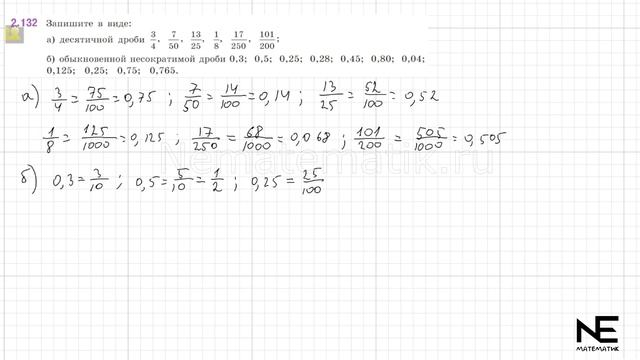 2.132 Запишите в виде:
а) десятичной дроби 3/4, 7/50, 13/25, 1/8, 17/250, 101/200;
б) обыкновенной несократимой дроби 0,3; 0,5; 0,25; 0,28; 0,45; 0,80; 0,04;
0,125; 0,25; 0,75; 0,765.
а) 3/4 = 75/100 = 0,75 ; 7/50 = 14/100 = 0,14 ; 13/25 = 52/100 = 0,52
1/8 = 125/1000 = 0,125 ; 17/250 = 68/1000 = 0,068 ; 101/200 = 505/1000 = 0,505
Nematematik.ru
б) 0,3 = 3/10 ; 0,5 = 5/10 = 1/2 ; 0,25 = 25/100
NE
МАТЕМАТИК